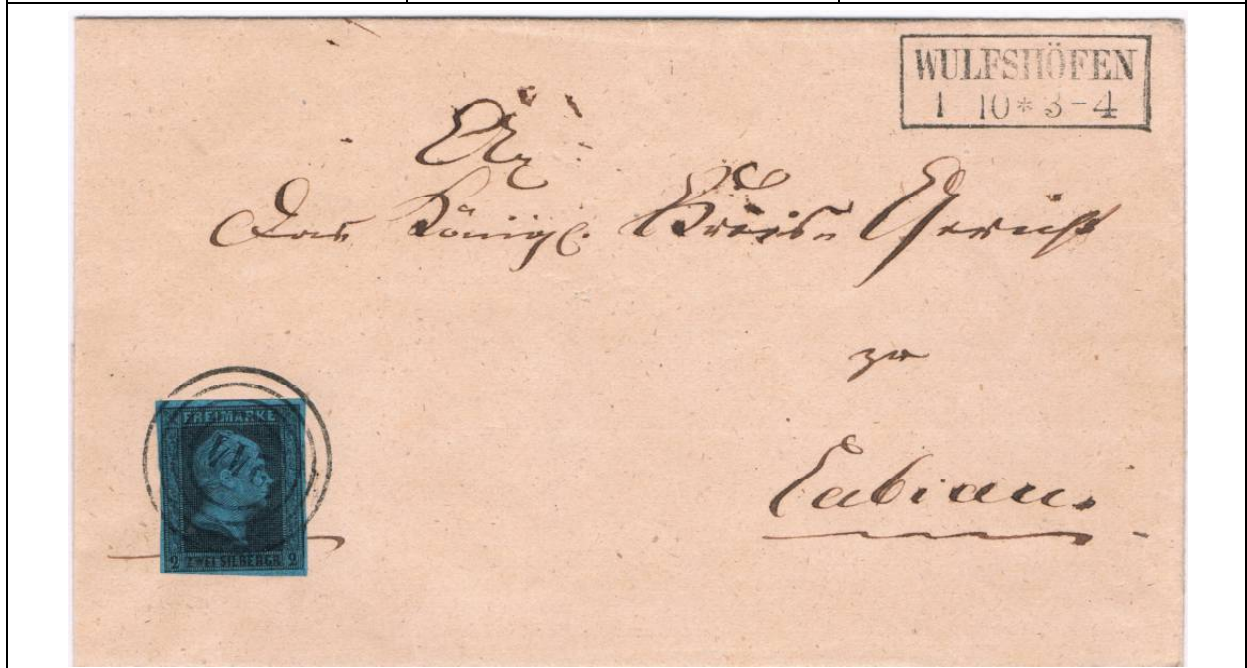 WULFSHÖFEN
1 10 * 3-4
An
Das Königl. Kreis-Gericht
zu
Labiau.
FREIMARKE
2 ZWEI SILBERGR. 2